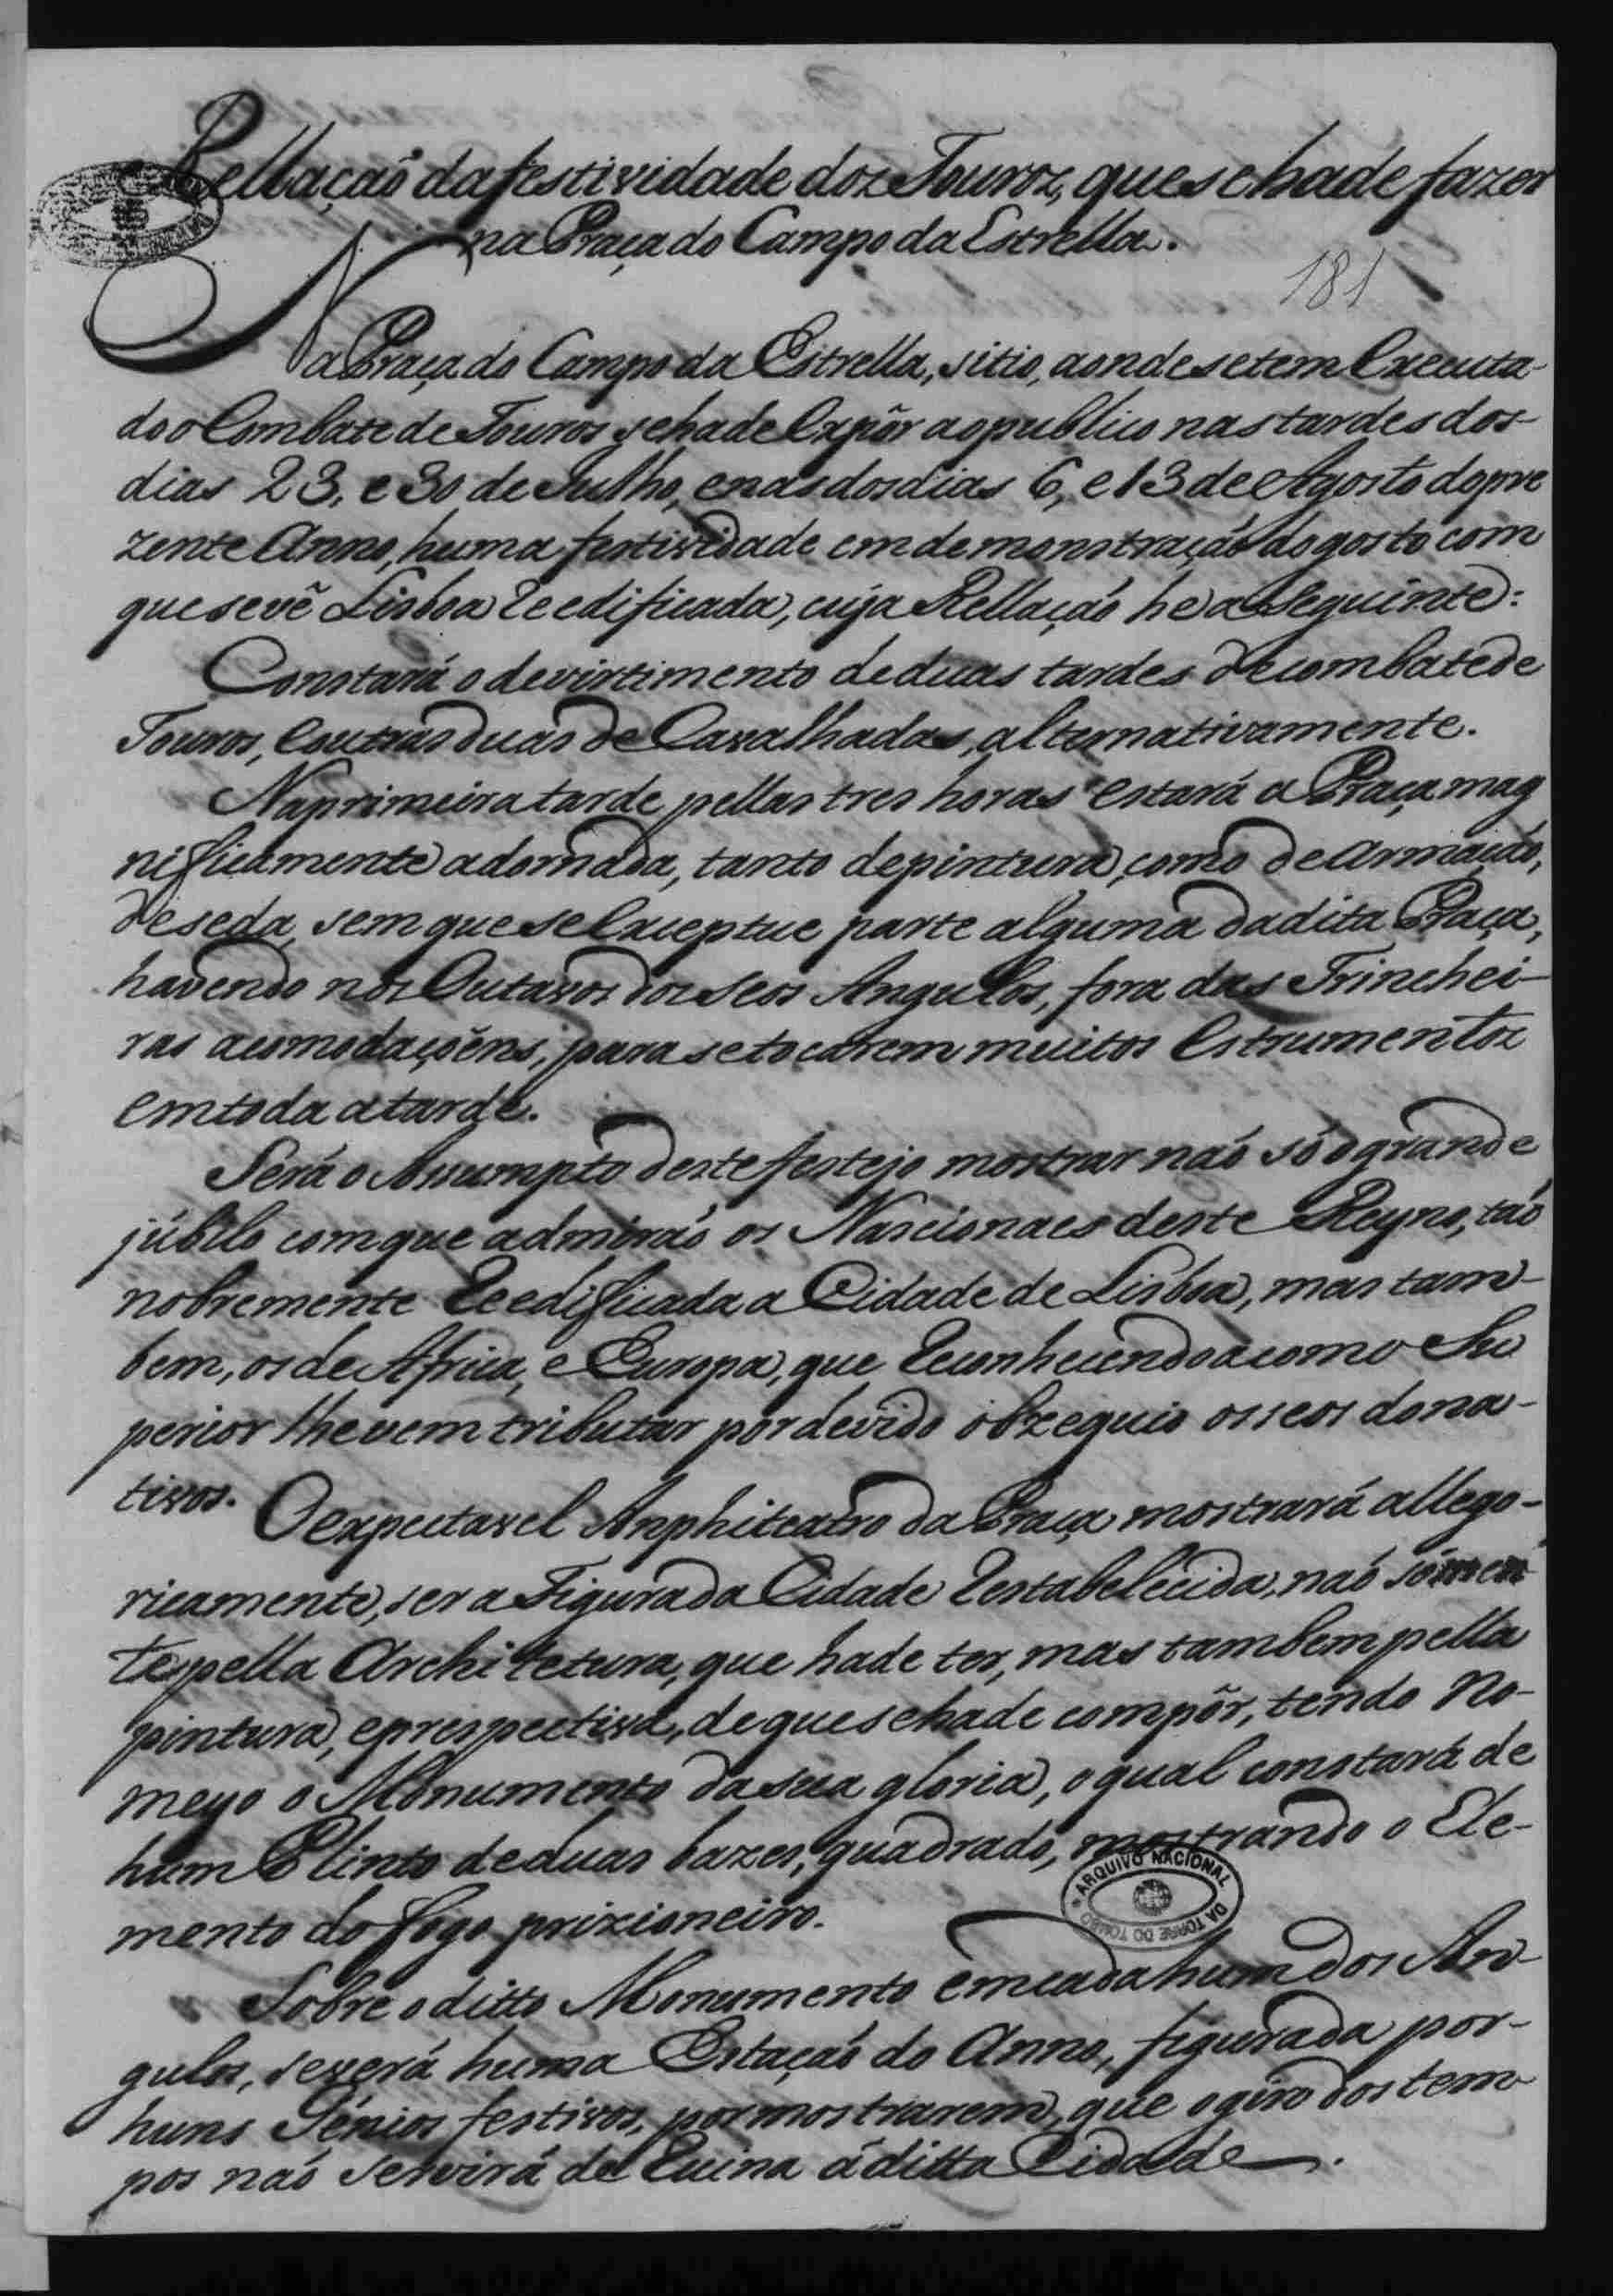 Rellação da festividade doz Touroz, que se hade fazer
na Praça do Campo da Estrella.
181
Na Praça do Campo da Estrella, sitio, aonde se tem Executa-
do o Combate de Touros se hade Expôr ao publico nas tardes dos
dias 23, e 30 de Julho, e nas dos dias 6, e 13 de Agosto do pre
zente Anno, huma festividade em demonstração do gosto com
que se vê Lisboa Reedificada, cuja Rellação he a Seguinte:
Constará o devirtimento de duas tardes de combate de
Touros, E outras duas de Cavalhadas, alternativamente.
Na primeira tarde pellas tres horas estará a Praça mag
nificamente adornada, tanto de pintura, como de armação,
de seda, sem que se Exceptue parte alguma da dita Praça,
havendo nos Outavos dos seos Angulos, fora das Trinchei-
ras acomodaçoẽns, para se tocarem muitos Estrumentos
em toda a tarde.
Será o Assumpto deste festejo mostrar não só o grande
júbilo com que admirão os Nascionaes deste Reyno, tão
nobremente Reedificada a Cidade de Lisboa, mas tam-
bem, os de Africa, e Europa, que Reconhecendo a como Su
perior lhe vem tributar por devido obzequio os seos dona-
tivos.
O expectavel Anphiteatro da Praça mostrará allego-
ricamente, ser a Figura da Cidade Restabelecida, não sómen
te pella Architetura, que hade ter, mas tambem pella
pintura, e prespectiva, de que se hade compôr, tendo no
meyo o Monumento da sua gloria, o qual constará de
hum Plinto de duas bazes, quadrado, mostrando o Ele-
mento do fogo prizioneiro.
ARQUIVO NACIONAL DA TORRE DO TOMBO
Sobre o ditto Monumento em cada hum dos An-
gulos, se verá huma Estação do Anno, figurada por-
huns Génios festivos, por mostrarem, que o giro dos tem
pos não servirá de Ruina á ditta Cidade.